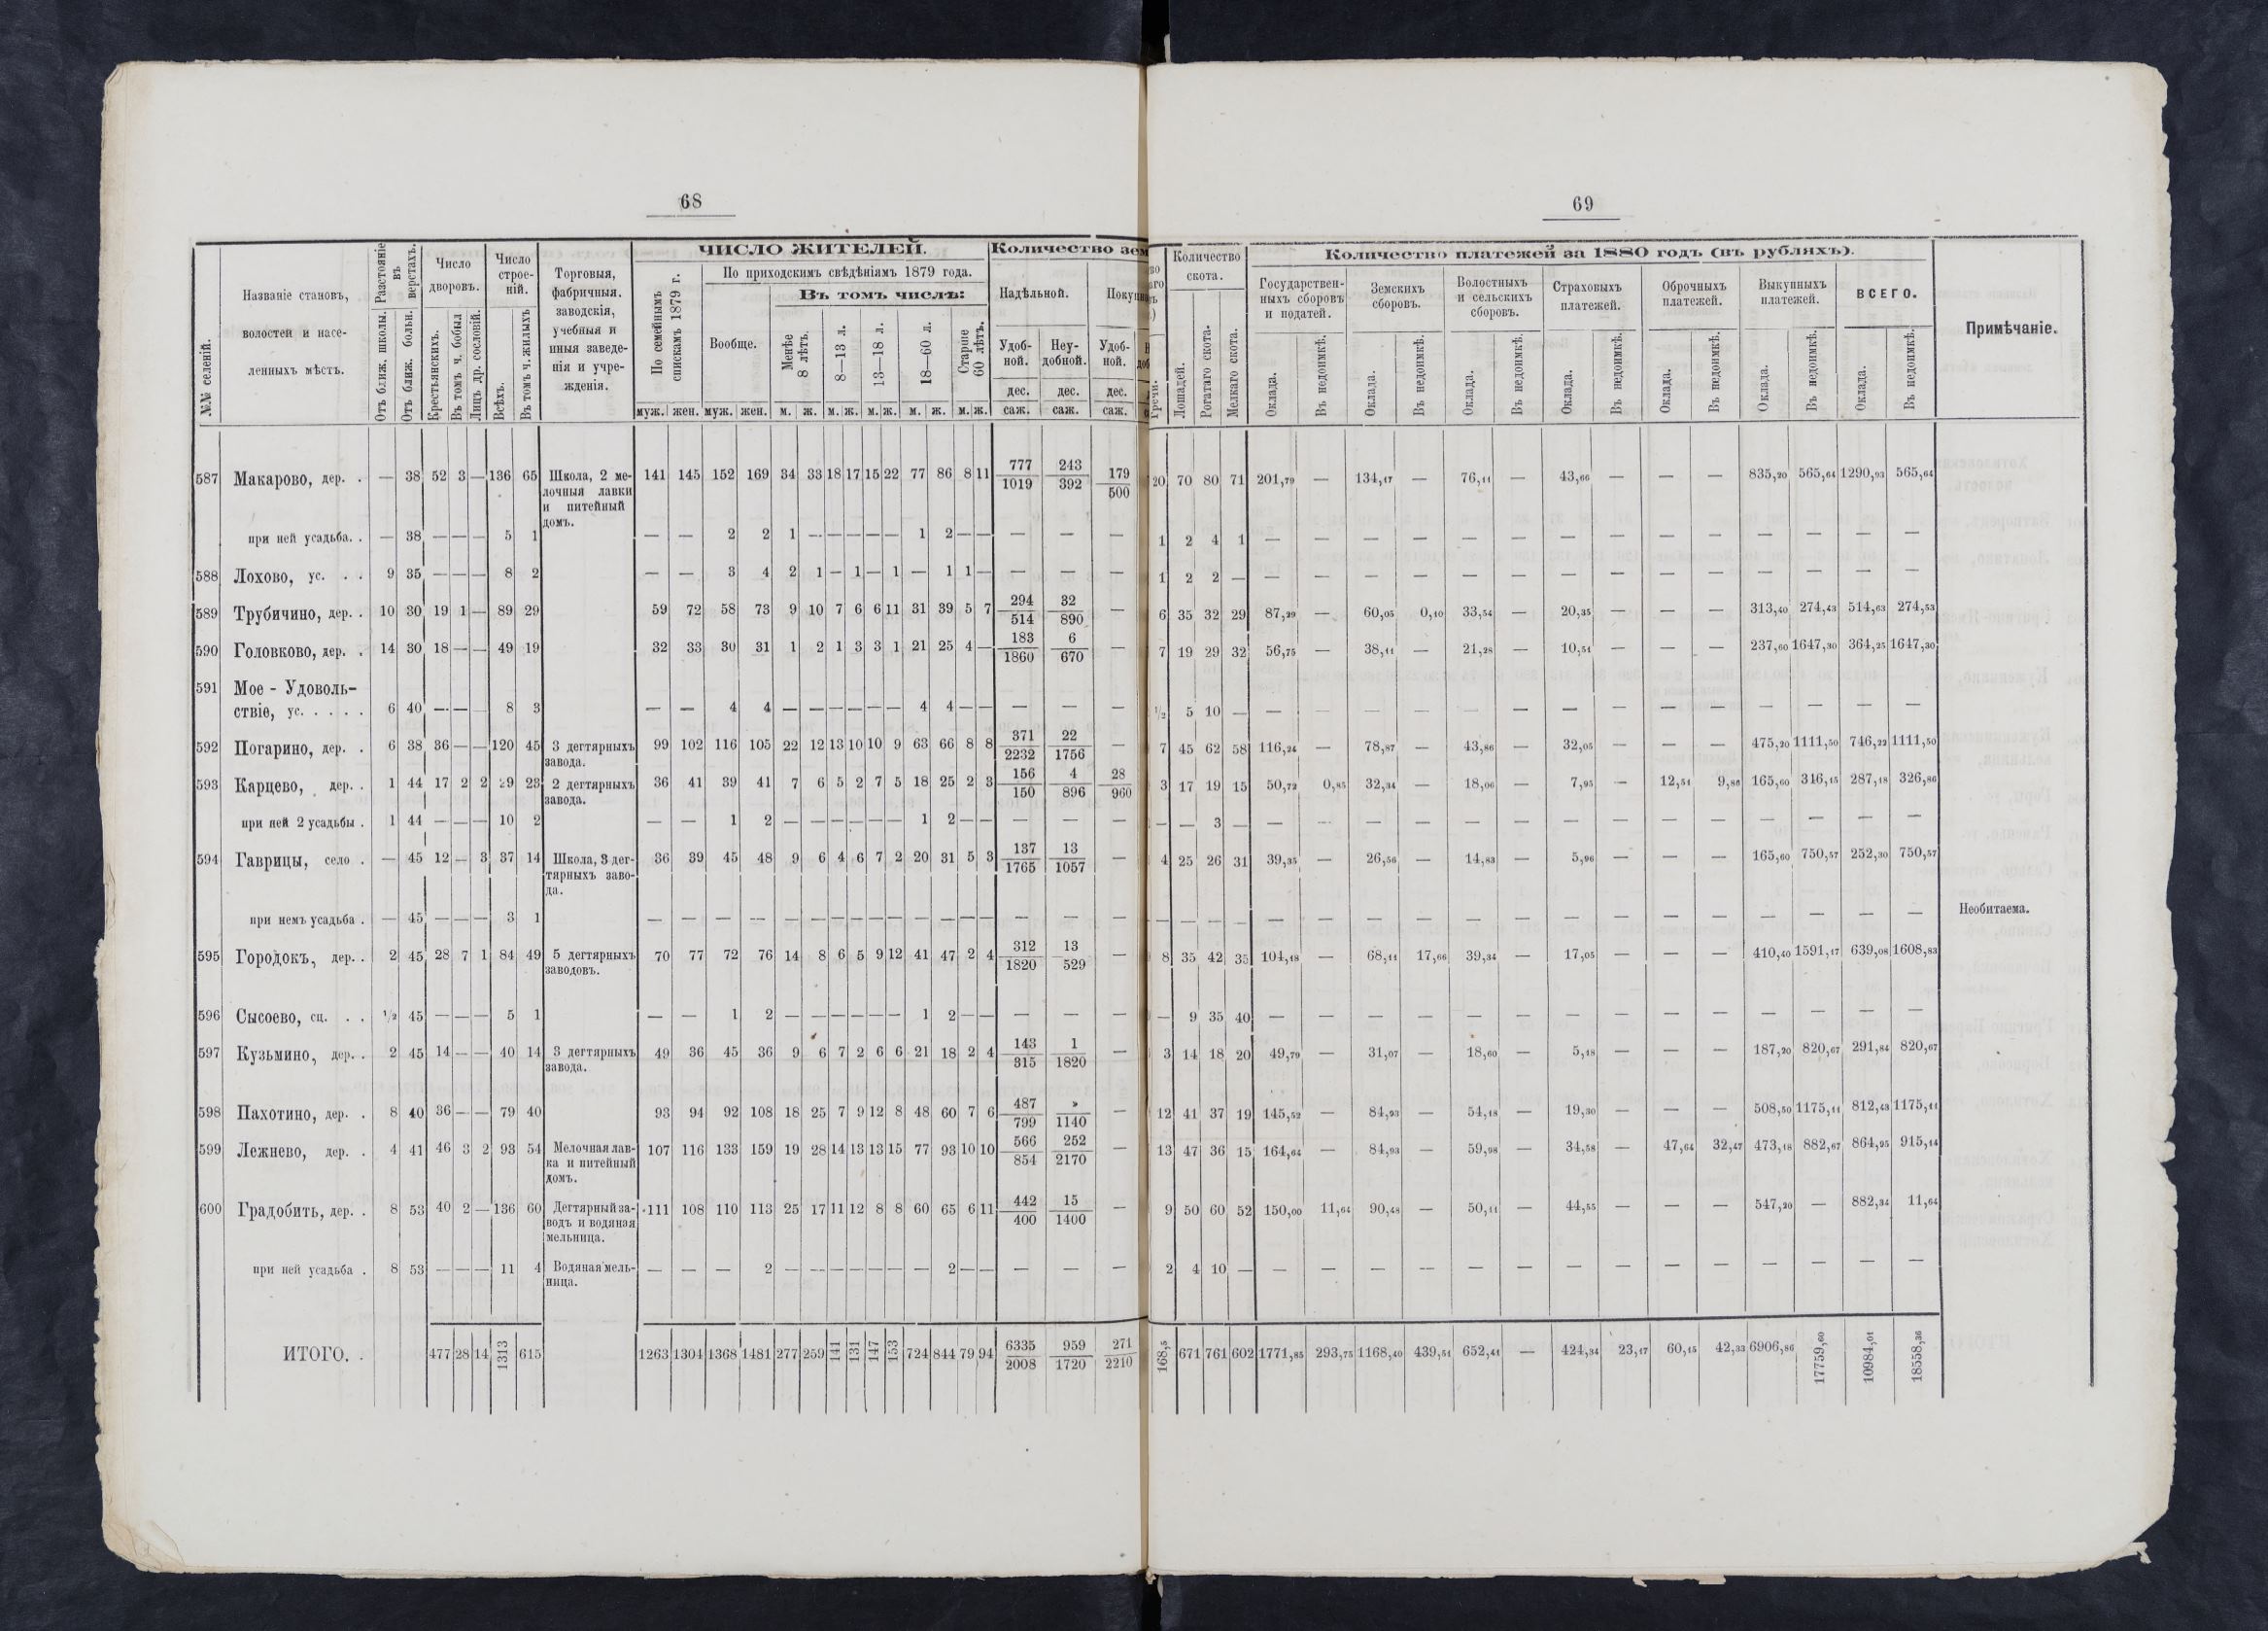 68
ЧИСЛО ЖИТЕЛЕЙ. Количество зем
№№ селеній. Названіе становъ, волостей и населенныхъ мѣстъ. Разстояніе въ верстахъ. Отъ ближ. школы. Отъ ближ. больн. Число дворовъ. Крестьянскихъ. Въ томъ ч. бобыл Лицъ др. сословій. Число строеній. Всѣхъ. Въ томъ ч. жилыхъ Торговыя, фабричныя, заводскія, учебныя и иныя заведенія и учрежденія.
По семейнымъ спискамъ 1879 г. По приходскимъ свѣдѣніямъ 1879 года. Вообще. Въ томъ числѣ: Менѣе 8 лѣтъ. 8—13 л. 13—18 л. 18—60 л. Старше 60 лѣтъ. Надѣльной. Удобной. Неудобной. Покуп Удобной.
муж. жен. муж. жен. м. ж. м. ж. м. ж. м. ж. м. ж. дес. саж. дес. саж. дес. саж.
587 Макарово, дер. . — 38 52 3 — 136 65 Школа, 2 мелочныя лавки и питейный домъ. 141 145 152 169 34 33 18 17 15 22 77 86 8 11 777/1019 243/392 179/500
при ней усадьба. . — 38 — — — 5 1 — — 2 2 1 — — — — — 1 2 — — — — —
588 Лохово, ус. . . 9 35 — — — 8 2 — — 3 4 2 1 — 1 — 1 — 1 1 — — — —
589 Трубичино, дер. . 10 30 19 1 — 89 29 59 72 58 73 9 10 7 6 6 11 31 39 5 7 294/514 32/890 —
590 Головково, дер. . 14 30 18 — — 49 19 32 33 30 31 1 2 1 3 3 1 21 25 4 — 183/1860 6/670 —
591 Мое - Удоволь-
ствіе, ус. . . . . 6 40 — — — 8 3 — — 4 4 — — — — — — 4 4 — — — — —
592 Погарино, дер. . 6 38 36 — — 120 45 3 дегтярныхъ завода. 99 102 116 105 22 12 13 10 10 9 63 66 8 8 371/2232 22/1756 —
593 Карцево, дер. . 1 44 17 2 2 29 23 2 дегтярныхъ завода. 36 41 39 41 7 6 5 2 7 5 18 25 2 3 156/150 4/896 28/960
при ней 2 усадьбы . 1 44 — — — 10 2 — — 1 2 — — — — — — 1 2 — — — — —
594 Гаврицы, село . — 45 12 — 3 37 14 Школа, 3 дегтярныхъ завода. 36 39 45 48 9 6 4 6 7 2 20 31 5 3 137/1765 13/1057 —
при немъ усадьба . — 45 — — — 3 1 — — — — — — — — — — — — — — — — —
595 Городокъ, дер. . 2 45 28 7 1 84 49 5 дегтярныхъ заводовъ. 70 77 72 76 14 8 6 5 9 12 41 47 2 4 312/1820 13/529 —
596 Сысоево, сц. . . 1/2 45 — — — 5 1 — — 1 2 — — — — — — 1 2 — — — — —
597 Кузьмино, дер. . 2 45 14 — — 40 14 3 дегтярныхъ завода. 49 36 45 36 9 6 7 2 6 6 21 18 2 4 143/315 1/1820 —
598 Пахотино, дер. . 8 40 36 — — 79 40 93 94 92 108 18 25 7 9 12 8 48 60 7 6 487/799 »/1140 —
599 Лежнево, дер. . 4 41 46 3 2 93 54 Мелочная лавка и питейный домъ. 107 116 133 159 19 28 14 13 13 15 77 93 10 10 566/854 252/2170 —
600 Градобить, дер. . 8 53 40 2 — 136 60 Дегтярный заводъ и водяная мельница. 111 108 110 113 25 17 11 12 8 8 60 65 6 11 442/400 15/1400 —
при ней усадьба . 8 53 — — — 11 4 Водяная мельница. — — — 2 — — — — — — — 2 — — — — —
ИТОГО. . 477 28 14 1313 615 1263 1304 1368 1481 277 259 141 131 147 153 724 844 79 94 6335/2008 959/1720 271/2210
69
Гречи. Количество скота. Лошадей. Рогатаго скота. Мелкаго скота. Количество платежей за 1880 годъ (въ рубляхъ). Примѣчаніе.
Государственныхъ сборовъ и податей. Земскихъ сборовъ. Волостныхъ и сельскихъ сборовъ. Страховыхъ платежей. Оброчныхъ платежей. Выкупныхъ платежей. ВСЕГО.
Оклада. Въ недоимкѣ. Оклада. Въ недоимкѣ. Оклада. Въ недоимкѣ. Оклада. Въ недоимкѣ. Оклада. Въ недоимкѣ. Оклада. Въ недоимкѣ. Оклада. Въ недоимкѣ.
20 70 80 71 201,79 — 134,17 — 76,11 — 43,66 — — — 835,20 565,64 1290,93 565,64
1 2 4 1 — — — — — — — — — — — — — —
1 2 2 — — — — — — — — — — — — — — —
6 35 32 29 87,29 — 60,05 0,10 33,54 — 20,35 — — — 313,40 274,43 514,63 274,53
7 19 29 32 56,75 — 38,11 — 21,28 — 10,51 — — — 237,60 1647,30 364,25 1647,30
1/2 5 10 — — — — — — — — — — — — — — —
7 45 62 58 116,24 — 78,87 — 43,86 — 32,05 — — — 475,20 1111,50 746,22 1111,50
3 17 19 15 50,72 0,85 32,34 — 18,06 — 7,95 — 12,51 9,86 165,60 316,15 287,18 326,86
— — 3 — — — — — — — — — — — — — — —
4 25 26 31 39,35 — 26,56 — 14,83 — 5,96 — — — 165,60 750,57 252,30 750,57
— — — — — — — — — — — — — — — — — — Необитаема.
8 35 42 35 104,18 — 68,11 17,66 39,34 — 17,05 — — — 410,40 1591,17 639,08 1608,83
— 9 35 40 — — — — — — — — — — — — — —
3 14 18 20 49,79 — 31,07 — 18,60 — 5,18 — — — 187,20 820,67 291,84 820,67
12 41 37 19 145,52 — 84,93 — 54,18 — 19,30 — — — 508,50 1175,11 812,43 1175,11
13 47 36 15 164,64 — 84,93 — 59,98 — 34,58 — 47,64 32,47 473,18 882,67 864,95 915,14
9 50 60 52 150,00 11,64 90,48 — 50,11 — 44,55 — — — 547,20 — 882,34 11,64
2 4 10 — — — — — — — — — — — — — — —
168,5 671 761 602 1771,85 293,75 1168,40 439,51 652,41 — 424,34 23,17 60,15 42,33 6906,86 17759,60 10984,01 18558,36